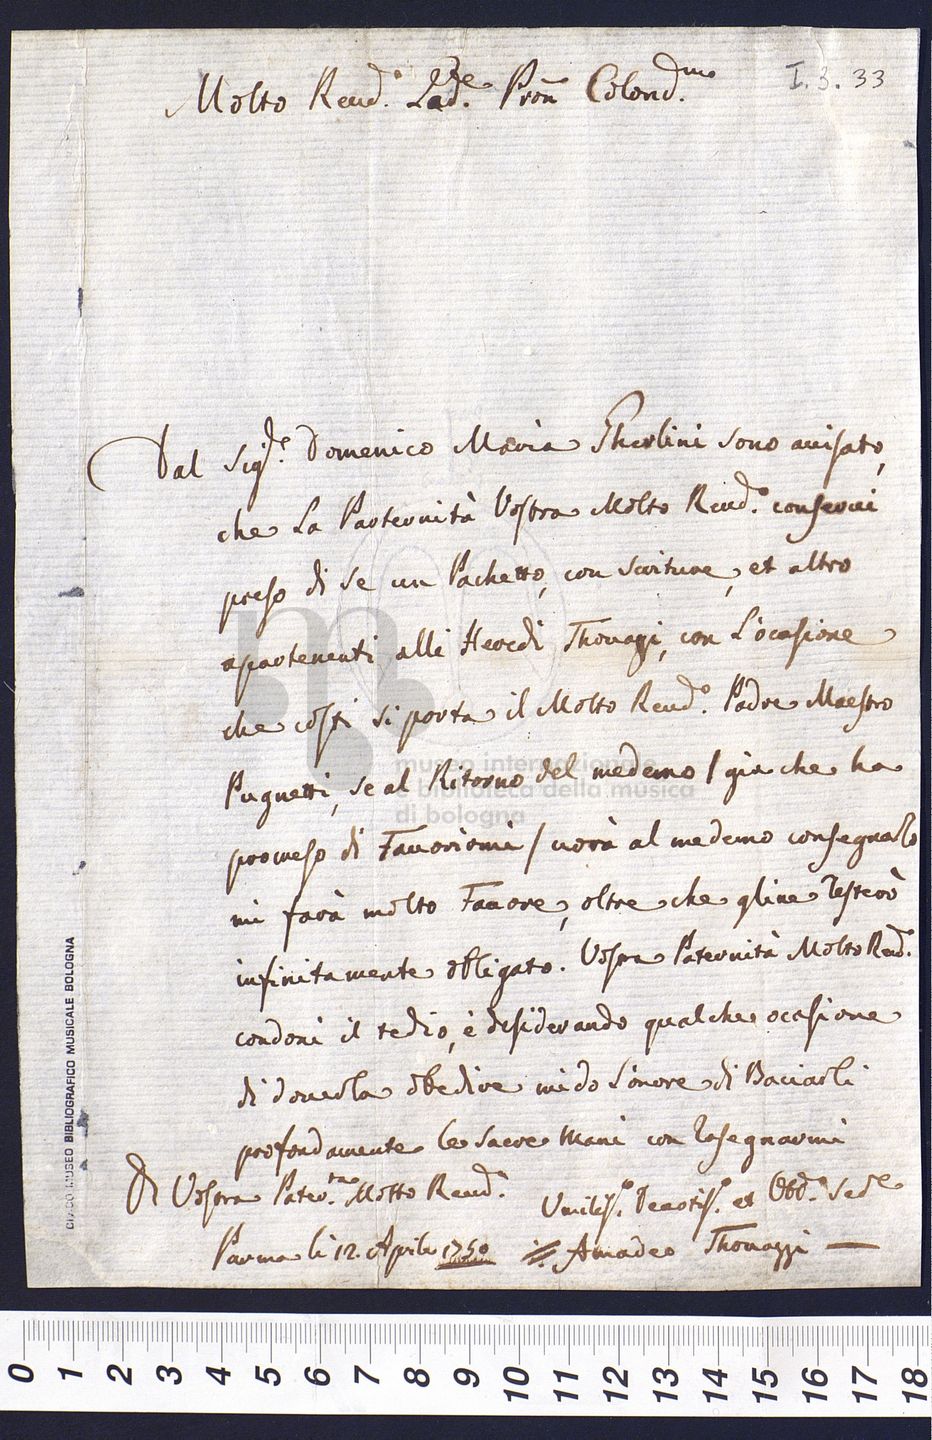 I. 3. 33
Molto Reud.o Pad.re Pron Colend.mo
Dal Sig.re Domenico Maria Gherlini sono auisato,
che La Paternità Vostra Molto Reud.o conserui
preso di se un Pachetto, con scriture, et altro
apartenenti alli Heredi Thouazzi, con L'ocasione
che costi si porta il Molto Reud.o Padre Maestro
Pugnetti, se al Ritorno del medemo / gia che ha
promeso di Fauorirmi / uorà al medemo consegnarlo
mi farà molto Fauore, oltre che gline resterò
infinitamente obligato. Vostra Paternità Molto Reud.o
condoni il tedio, è desiderando qualche ocasione
di douerla obedire mi do l'onore di Baciarli
profondamente le sacre Mani con rasegnarmi
Di Vostra Pater.tà Molto Reud.o
Umilis.o Deuotis.o et Obb.o Se.re
Parma li 12. Aprile 1750
Amadeo Thouazzi
museo internazionale
e biblioteca della musica
di bologna
CIVICO MUSEO BIBLIOGRAFICO MUSICALE BOLOGNA
0 1 2 3 4 5 6 7 8 9 10 11 12 13 14 15 16 17 18